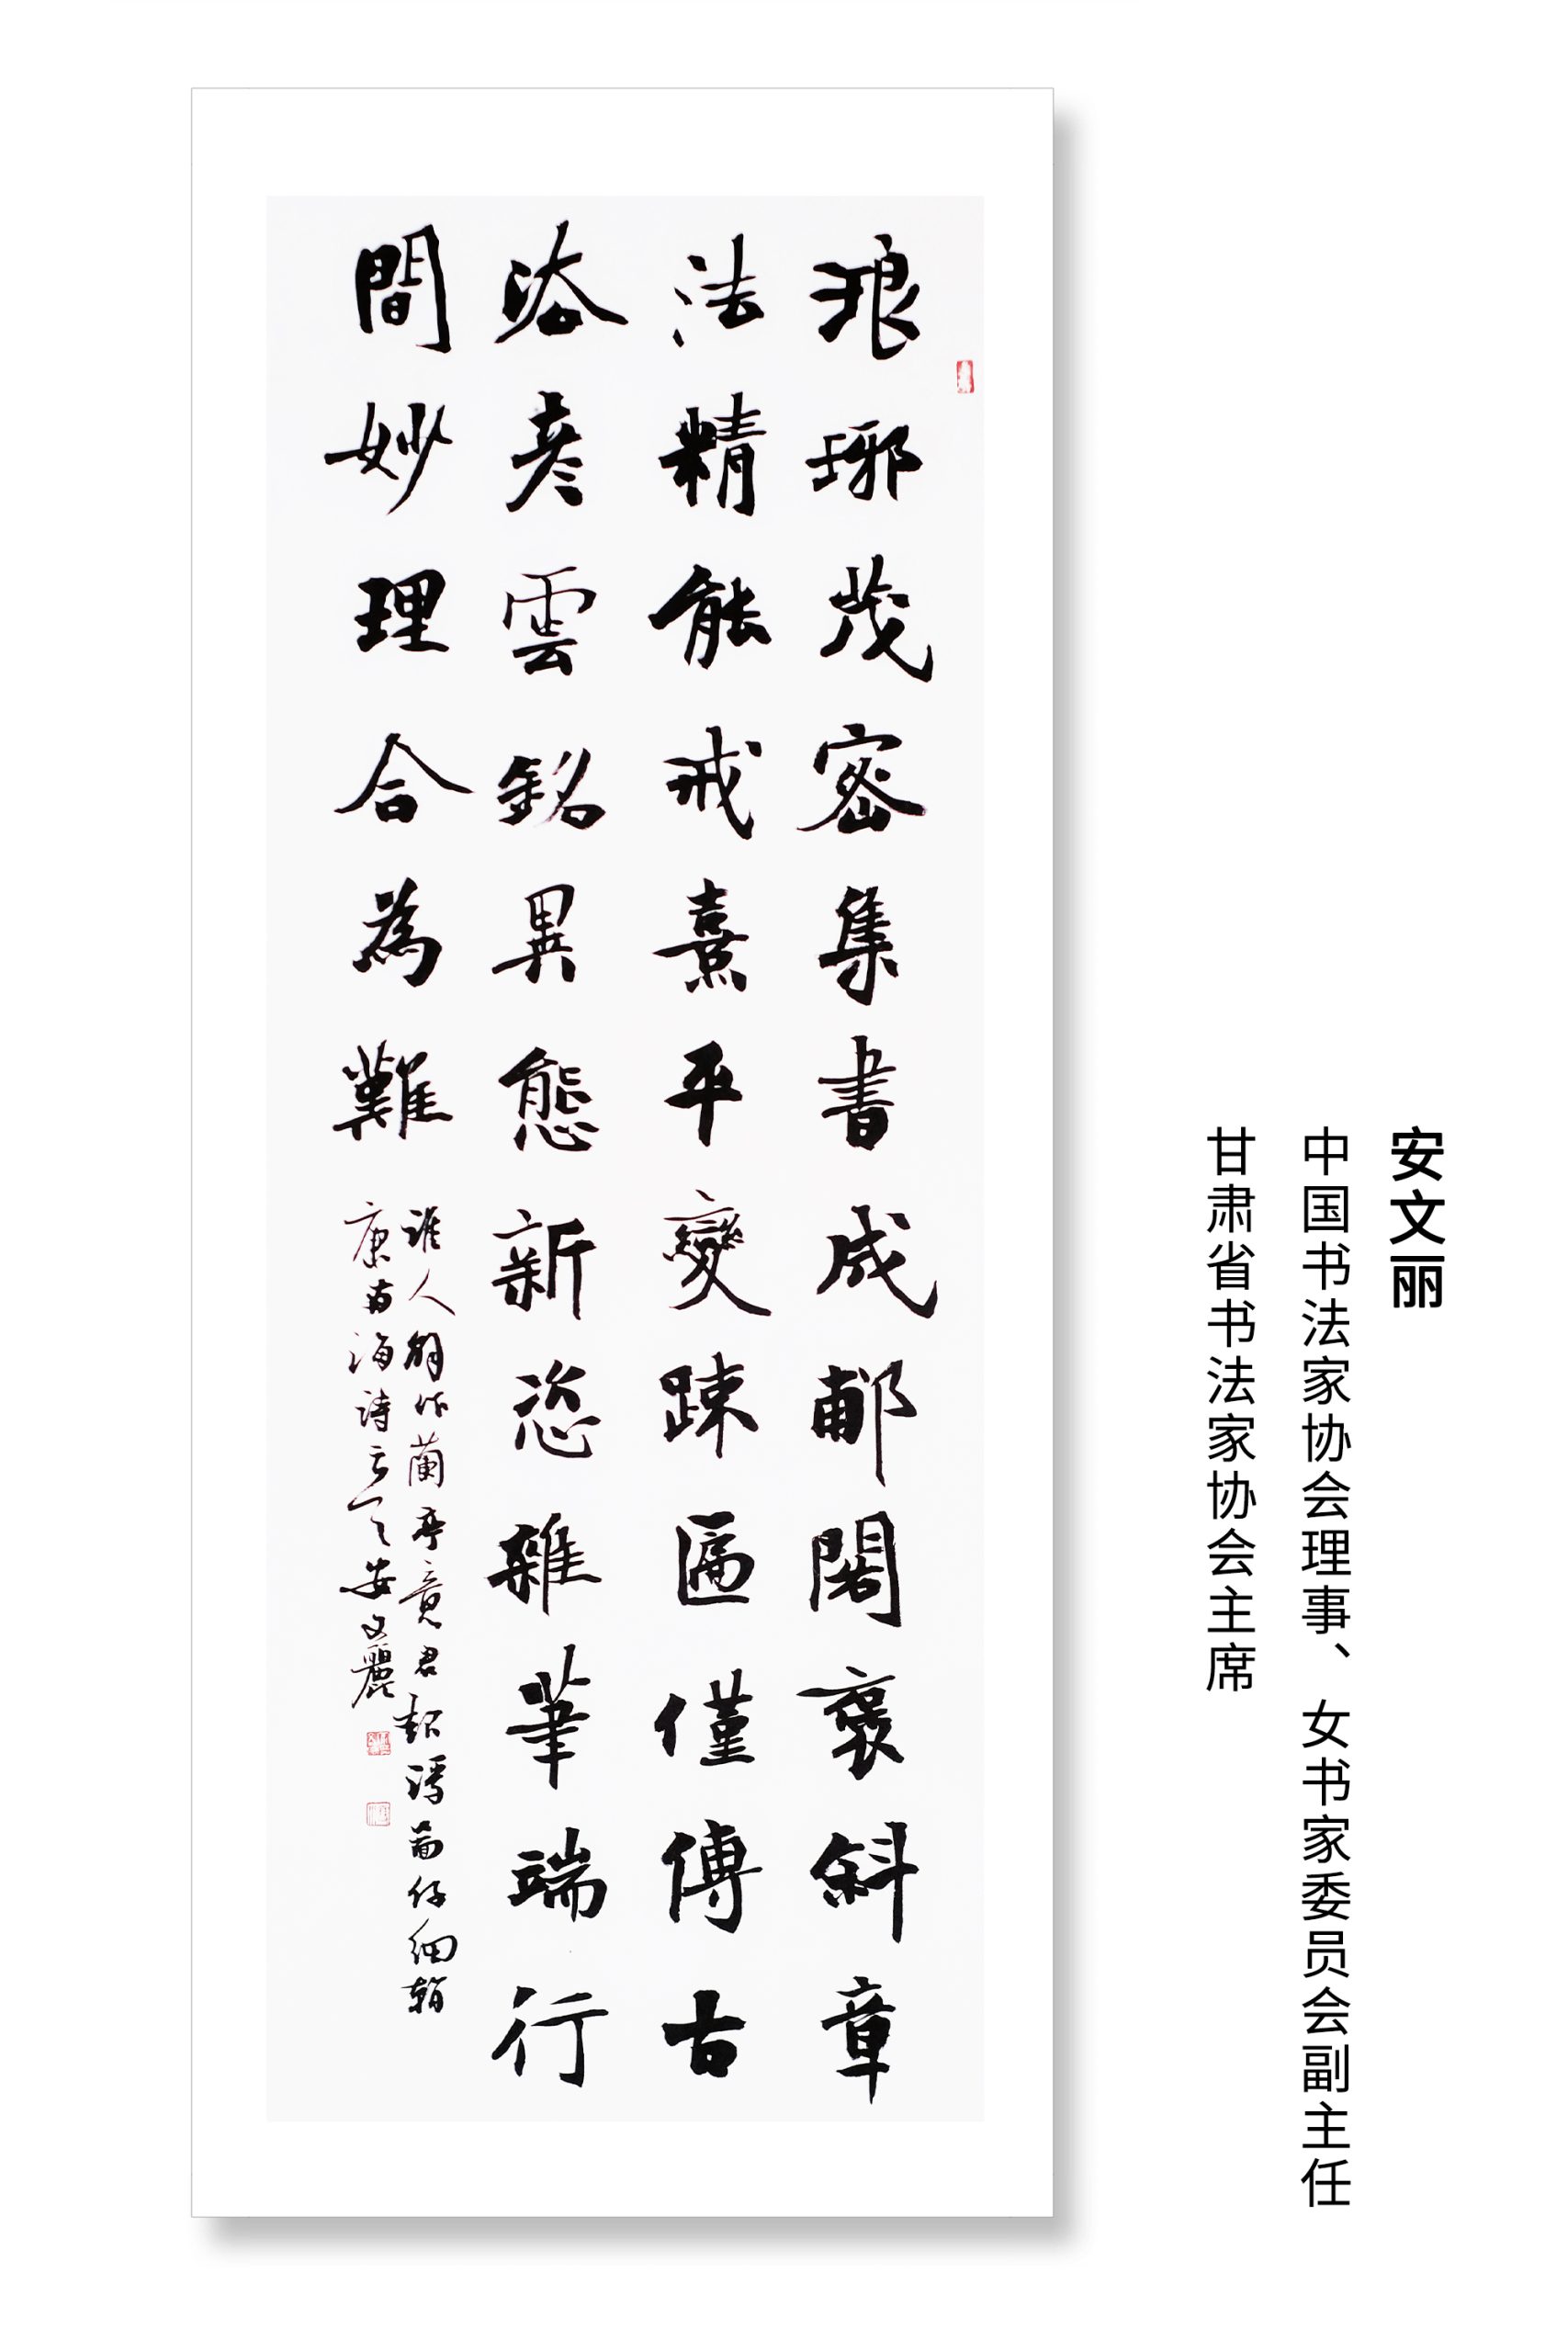 安文丽
中国书法家协会理事、女书家委员会副主任
甘肃省书法家协会主席
琅琊茂密集書成郙閣褒斜章
法精能戒熹平變疎匾僅傳古
彦雲銘異態新恣雜筆端行
間妙理合為難
誰人解作蘭亭竟君仔細
康南海詩安文麗